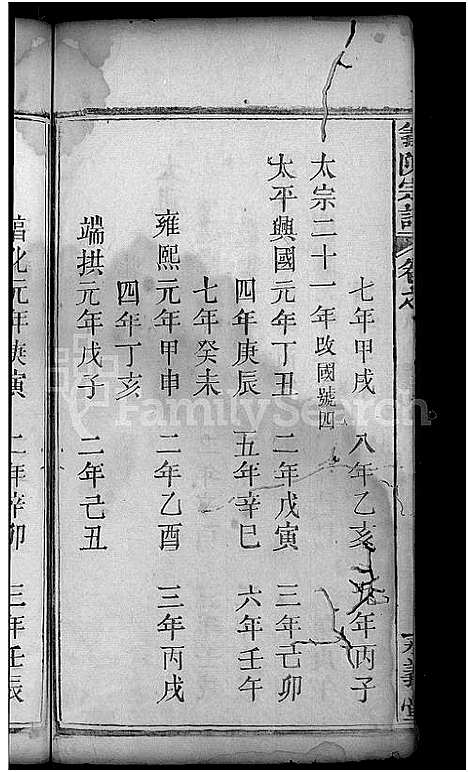 陳宗譜
七年甲戌 八年乙亥 九年丙子
太宗二十一年改國號四
太平興國元年丁丑 二年戊寅 三年己卯
四年庚辰 五年辛巳 六年壬午
七年癸未
雍熙元年甲申 二年乙酉 三年丙戌
四年丁亥
端拱元年戊子 二年己丑
化元年庚寅 二年辛卯 三年壬辰
FamilySearch